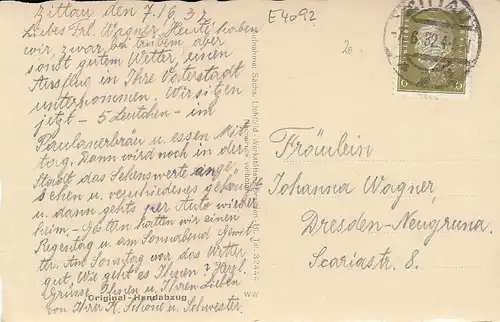 Zittau den 7./6.32
E4092
Liebes Frl. Wagner, Heute haben
wir zwar bei trübem aber
sonst gutem Wetter, einen
Ausflug in Ihre Vaterstadt
unternommen. Wir sitzen
jetzt - 5 Leutchen - im
Paulanerbräu u. essen Mit-
tag. Dann wird noch in der
Stadt das Sehenswerte ange-
sehen u. verschiedenes gekauft
u. dann gehts per Auto wieder
heim. - Gestern hatten wir einen
Regentag u. am Sonnabend Gewit-
ter. Am Sonntag war das Wetter
gut. Wie geht es Ihnen? Herzl.
Grüsse Ihnen u. Ihren Lieben
von Ihrer A. Schöne u. Schwester.
Original-Handabzug
ZITTAU
6.32.4
6
Fräulein
Johanna Wagner,
Dresden-Neugruna.
Scariastr. 8.